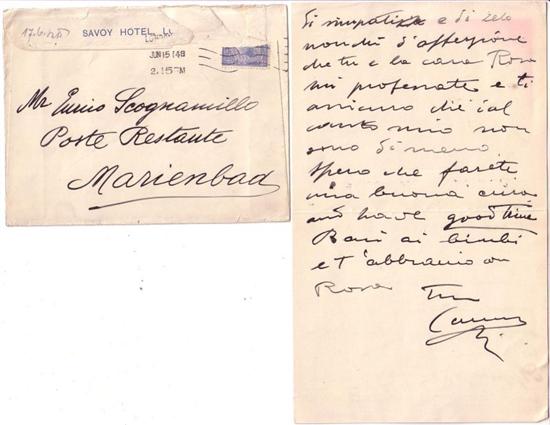 17.6.
SAVOY HOTEL, L
LONDON
JUN 15
2.15 PM
Mr Ennio Scognamillo
Poste Restante
Marienbad
Di simpatia e di zelo
nonchè d'affezione
che tu e la cara Rosa
mi professate e ti
che dal
canto mio non
sono di meno.
Spero che farete
una buona cura
and have good time
Baci ai bimbi
e t'abbraccio con
Rosa
Tuo